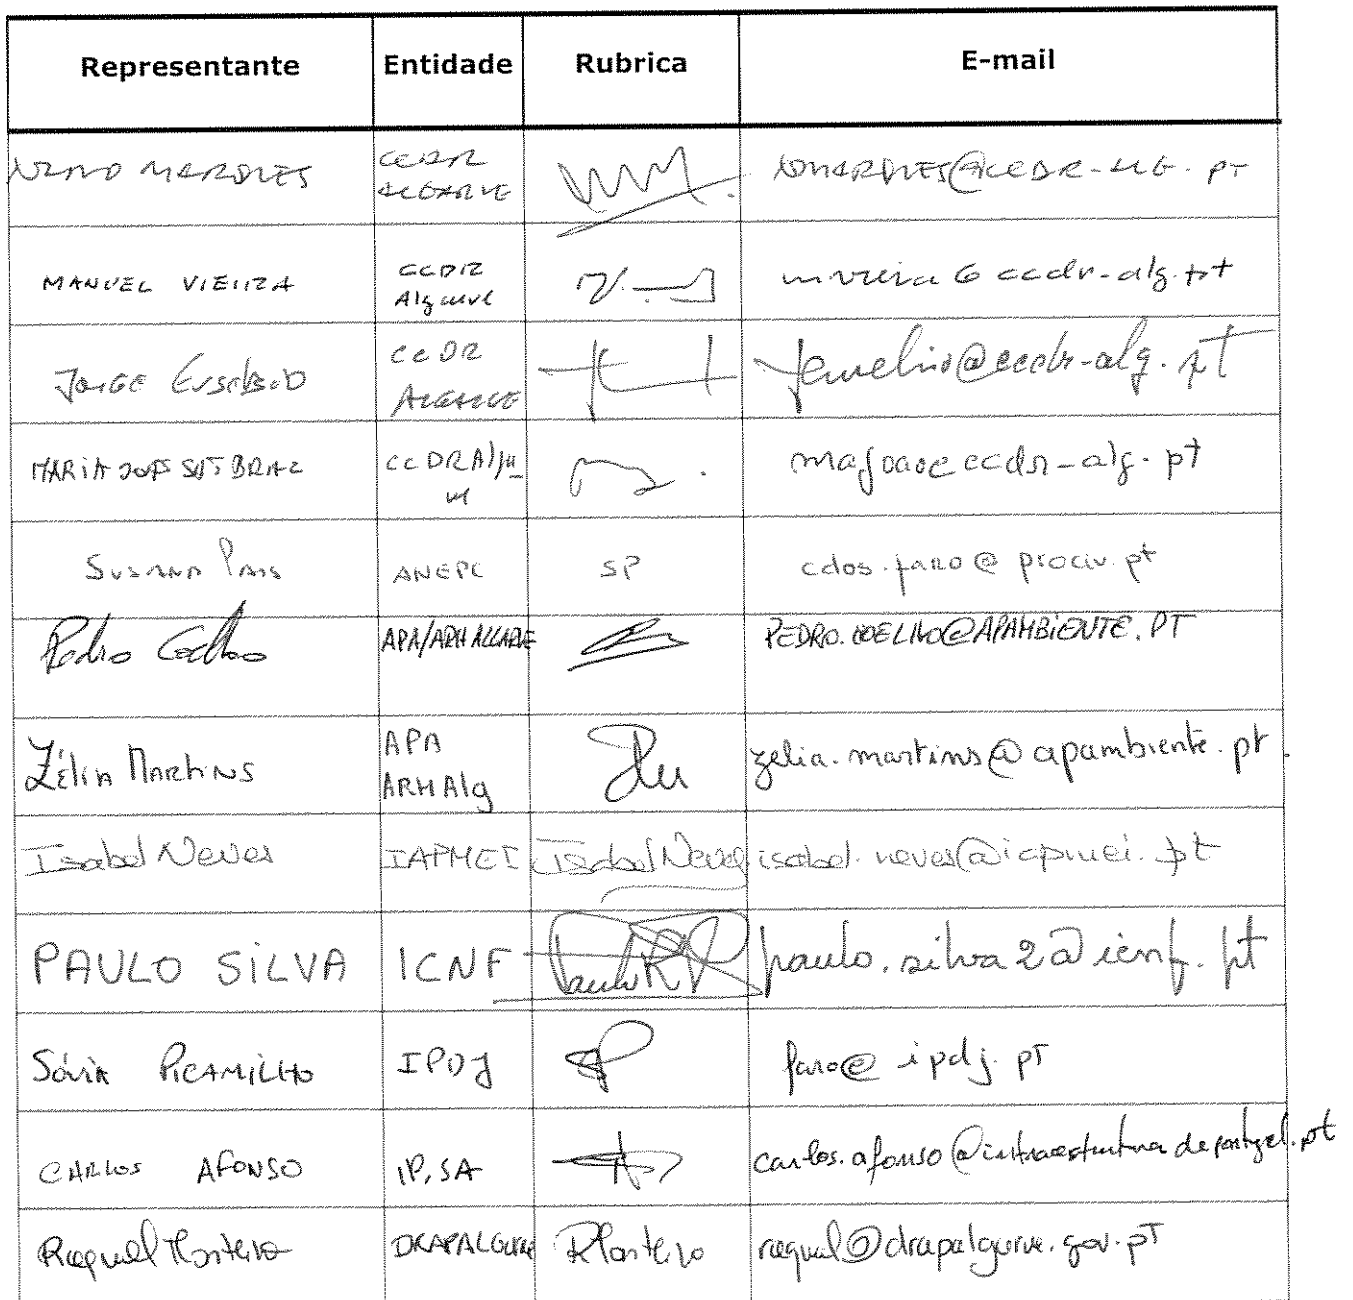 Representante Entidade Rubrica E-mail
NUNO MARQUES CCDR ALGARVE NMARQUES@CCDR-ALG.PT
MANUEL VIEIRA CCDR Algarve mvieira@ccdr-alg.pt
JORGE EUSÉBIO CCDR ALGARVE jeusebio@ccdr-alg.pt
MARIA JOSÉ BRAZ CCDR Algarve ccdr-alg.pt
Susana Pais ANEPC SP cdos.faro@prociv.pt
Pedro Coelho APA/ARH ALGARVE PEDRO.COELHO@APAMBIENTE.PT
Zélia Martins APA ARHAlg zelia.martins@apambiente.pt
Isabel Neves IAPMEI Isabel Neves isabel.neves@iapmei.pt
PAULO SILVA ICNF paulo.silva2@icnf.pt
IPDJ faro@ipdj.pt
CARLOS AFONSO IP, SA carlos.afonso@infraestruturasdeportugal.pt
Raquel Monteiro DRAPALGARVE RMonteiro raquel@drapalgarve.gov.pt